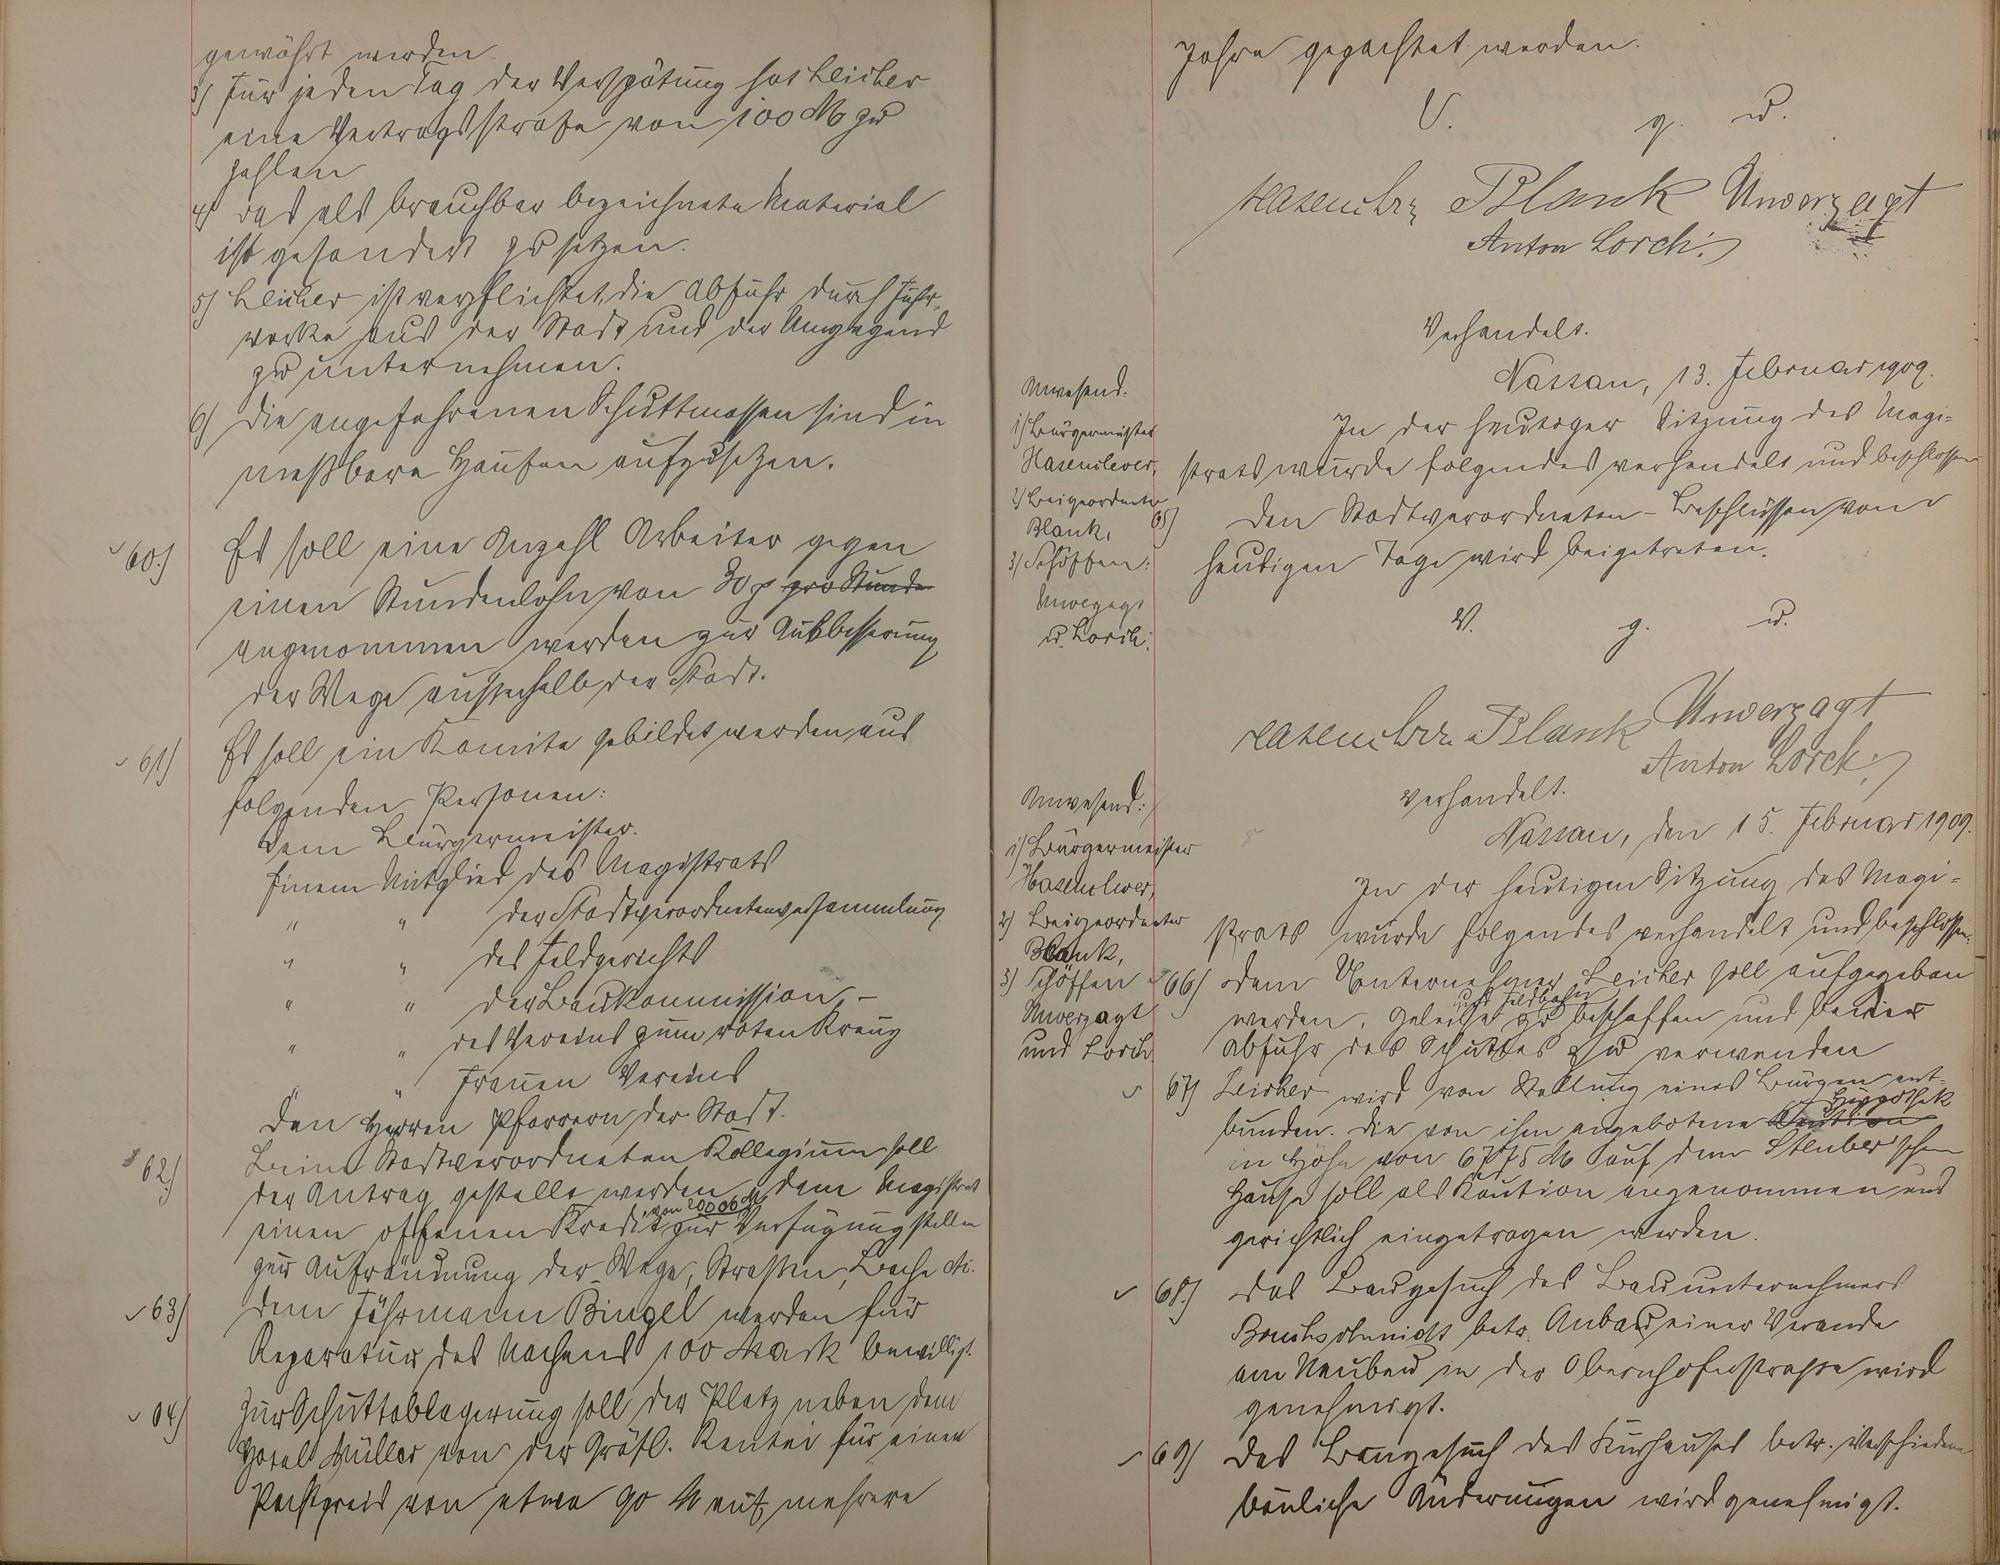 gewährt werden.
3) Für jeden Tag der Verspätung hat Leicher
eine Vertragsstrafe von 100 M zu
zahlen
4) Das als brauchbar bezeichnete Material
ist gesondert zu setzen.
5) Leicher ist verpflichtet, die Abfuhr durch Fuhr-
werke aus der Stadt und der Umgegend
zu unternehmen.
6) Die angefahrenen Schuttmassen sind in
meßbare Haufen aufzusetzen.
60.) Es soll eine Anzahl Arbeiter gegen
einen Stundenlohn von 30 pro Stunde
angenommen werden zur Ausbesserung
der Wege ausserhalb der Stadt.
61) Es soll ein Komite gebildet werden aus
folgenden Personen:
Dem Bürgermeister.
Einem Mitglied des Magistrats
" " der Stadtverordnetenversammlung
" " des Feldgerichts
" " der Baukommission -
" " des Vereins zum roten Kreuz
" " Frauen Vereins
Den Herren Pfarrern der Stadt.
62.) Beim Stadtverordneten Kollegium soll
der Antrag gestellt werden, dem Magistrat
einen offenen Kredit von 20000 M zur Verfügung stellen
zur Aufräumung der Wege, Strassen, Bache
63) Dem Fährmann Bingel werden für
Reparatur des Nachens 100 Mark bewilligt.
64) Zur Schuttablagerung soll der Platz neben dem
Hotel Müller von der Gräfl. Rentei für einen
Pachtpreis von etwa 90 M auf mehrere
Jahre gepachtet werden.
V. g. u.
Hasenclever Blank Unverzagt
Anton Lorch.
Verhandelt.
Nassau, 13. Februar 1909.
Anwesend:
1) Bürgermeister
Hasenclever,
2) Beigeordneter
Blank,
3) Schöffen:
Unverzagt
u. Lorch.
In der heutiger Sitzung des Magi-
strats wurde folgendes verhandelt und beschlossen
65) Den Stadtverordneten-Beschlüssen vom
heutigen Tage wird beigetreten.
V. g. u.
Hasenclever Blank Unverzagt
Anton Lorch.
Verhandelt.
Nassau, den 15. Februar 1909.
Anwesend:
1) Bürgermeister
Hasenclever,
2) Beigeordneter
Blank,
3) Schöffen
Unverzagt
und Lorch
In der heutigen Sitzung des Magi-
strats wurde folgendes verhandelt und beschlossen.
66) Dem Unternehmer Leicher soll aufgegeben
werden, Geleise und Feldbahn zu beschaffen und bei der
Abfuhr des Schuttes zu verwenden
67) Leicher wird von Stellung eines Bürgen ent-
bunden. Die von ihm angebotene Kaution Hypothek
in Höhe von 6775 M auf dem Stenber'schen
Hause soll als Kaution angenommen und
gerichtlich eingetragen werden.
68.) Das Baugesuch des Bauunternehmers
Bruchschmidt betr. Anbau einer Veranda
am Neubau in der Obernhoferstrasse wird
genehmigt.
69) Das Baugesuch des Kurhauses betr. verschiedene
bauliche Änderungen wird genehmigt.